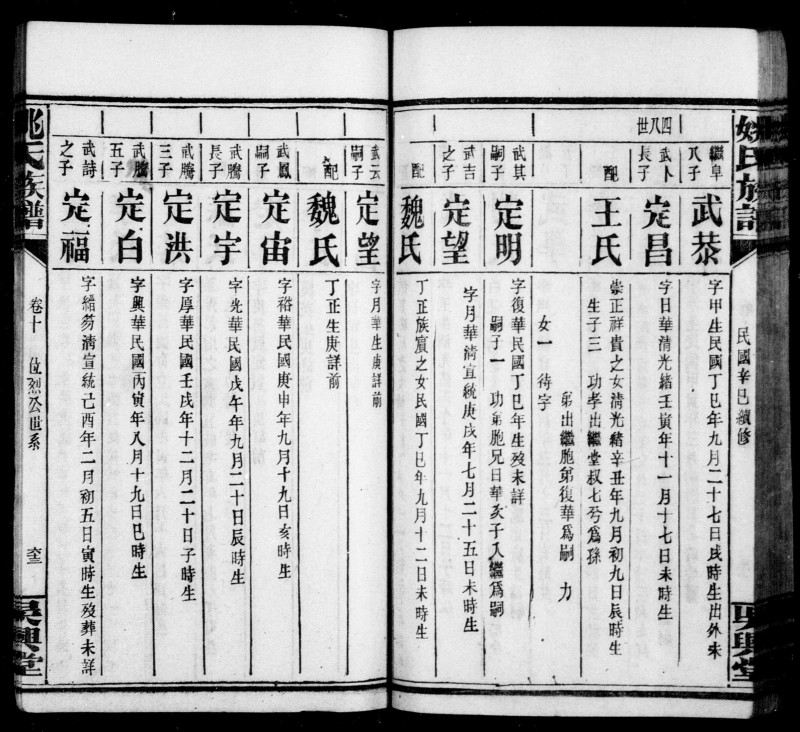 姚氏族譜
民國辛巳續修
吳興堂
四八世
繼阜八子
武恭
字甲生民國丁巳年九月二十七日戌時生出外未
武卜長子
定昌
字日華清光緒壬寅年十一月十七日未時生
配
王氏
崇正祥貴之女清光緒辛丑年九月初九日辰時生
生子三 功孝出繼堂叔七兮爲孫
弟出繼胞弟復華爲嗣 力
女一 待字
武其嗣子
定明
字復華民國丁巳年生歿未詳
嗣子一 功弟胞兄日華亥子入繼爲嗣
武吉之子
定望
字月華清宣統庚戌年七月二十五日未時生
配
魏氏
丁正族賓之女民國丁巳年九月十二日未時生
武云嗣子
定望
字月華生庚詳前
配
魏氏
丁正生庚詳前
武鳳嗣子
定宙
字裕華民國庚申年九月十九日亥時生
武騰長子
定宇
字光華民國戊午年九月二十日辰時生
武騰三子
定洪
字厚華民國壬戌年十二月二十日子時生
武騰五子
定白
字興華民國丙寅年八月十九日巳時生
武詩之子
定福
字緒芴清宣統己酉年二月初五日寅時生歿葬未詳
姚氏族譜
卷十 位烈公世系
吳興堂